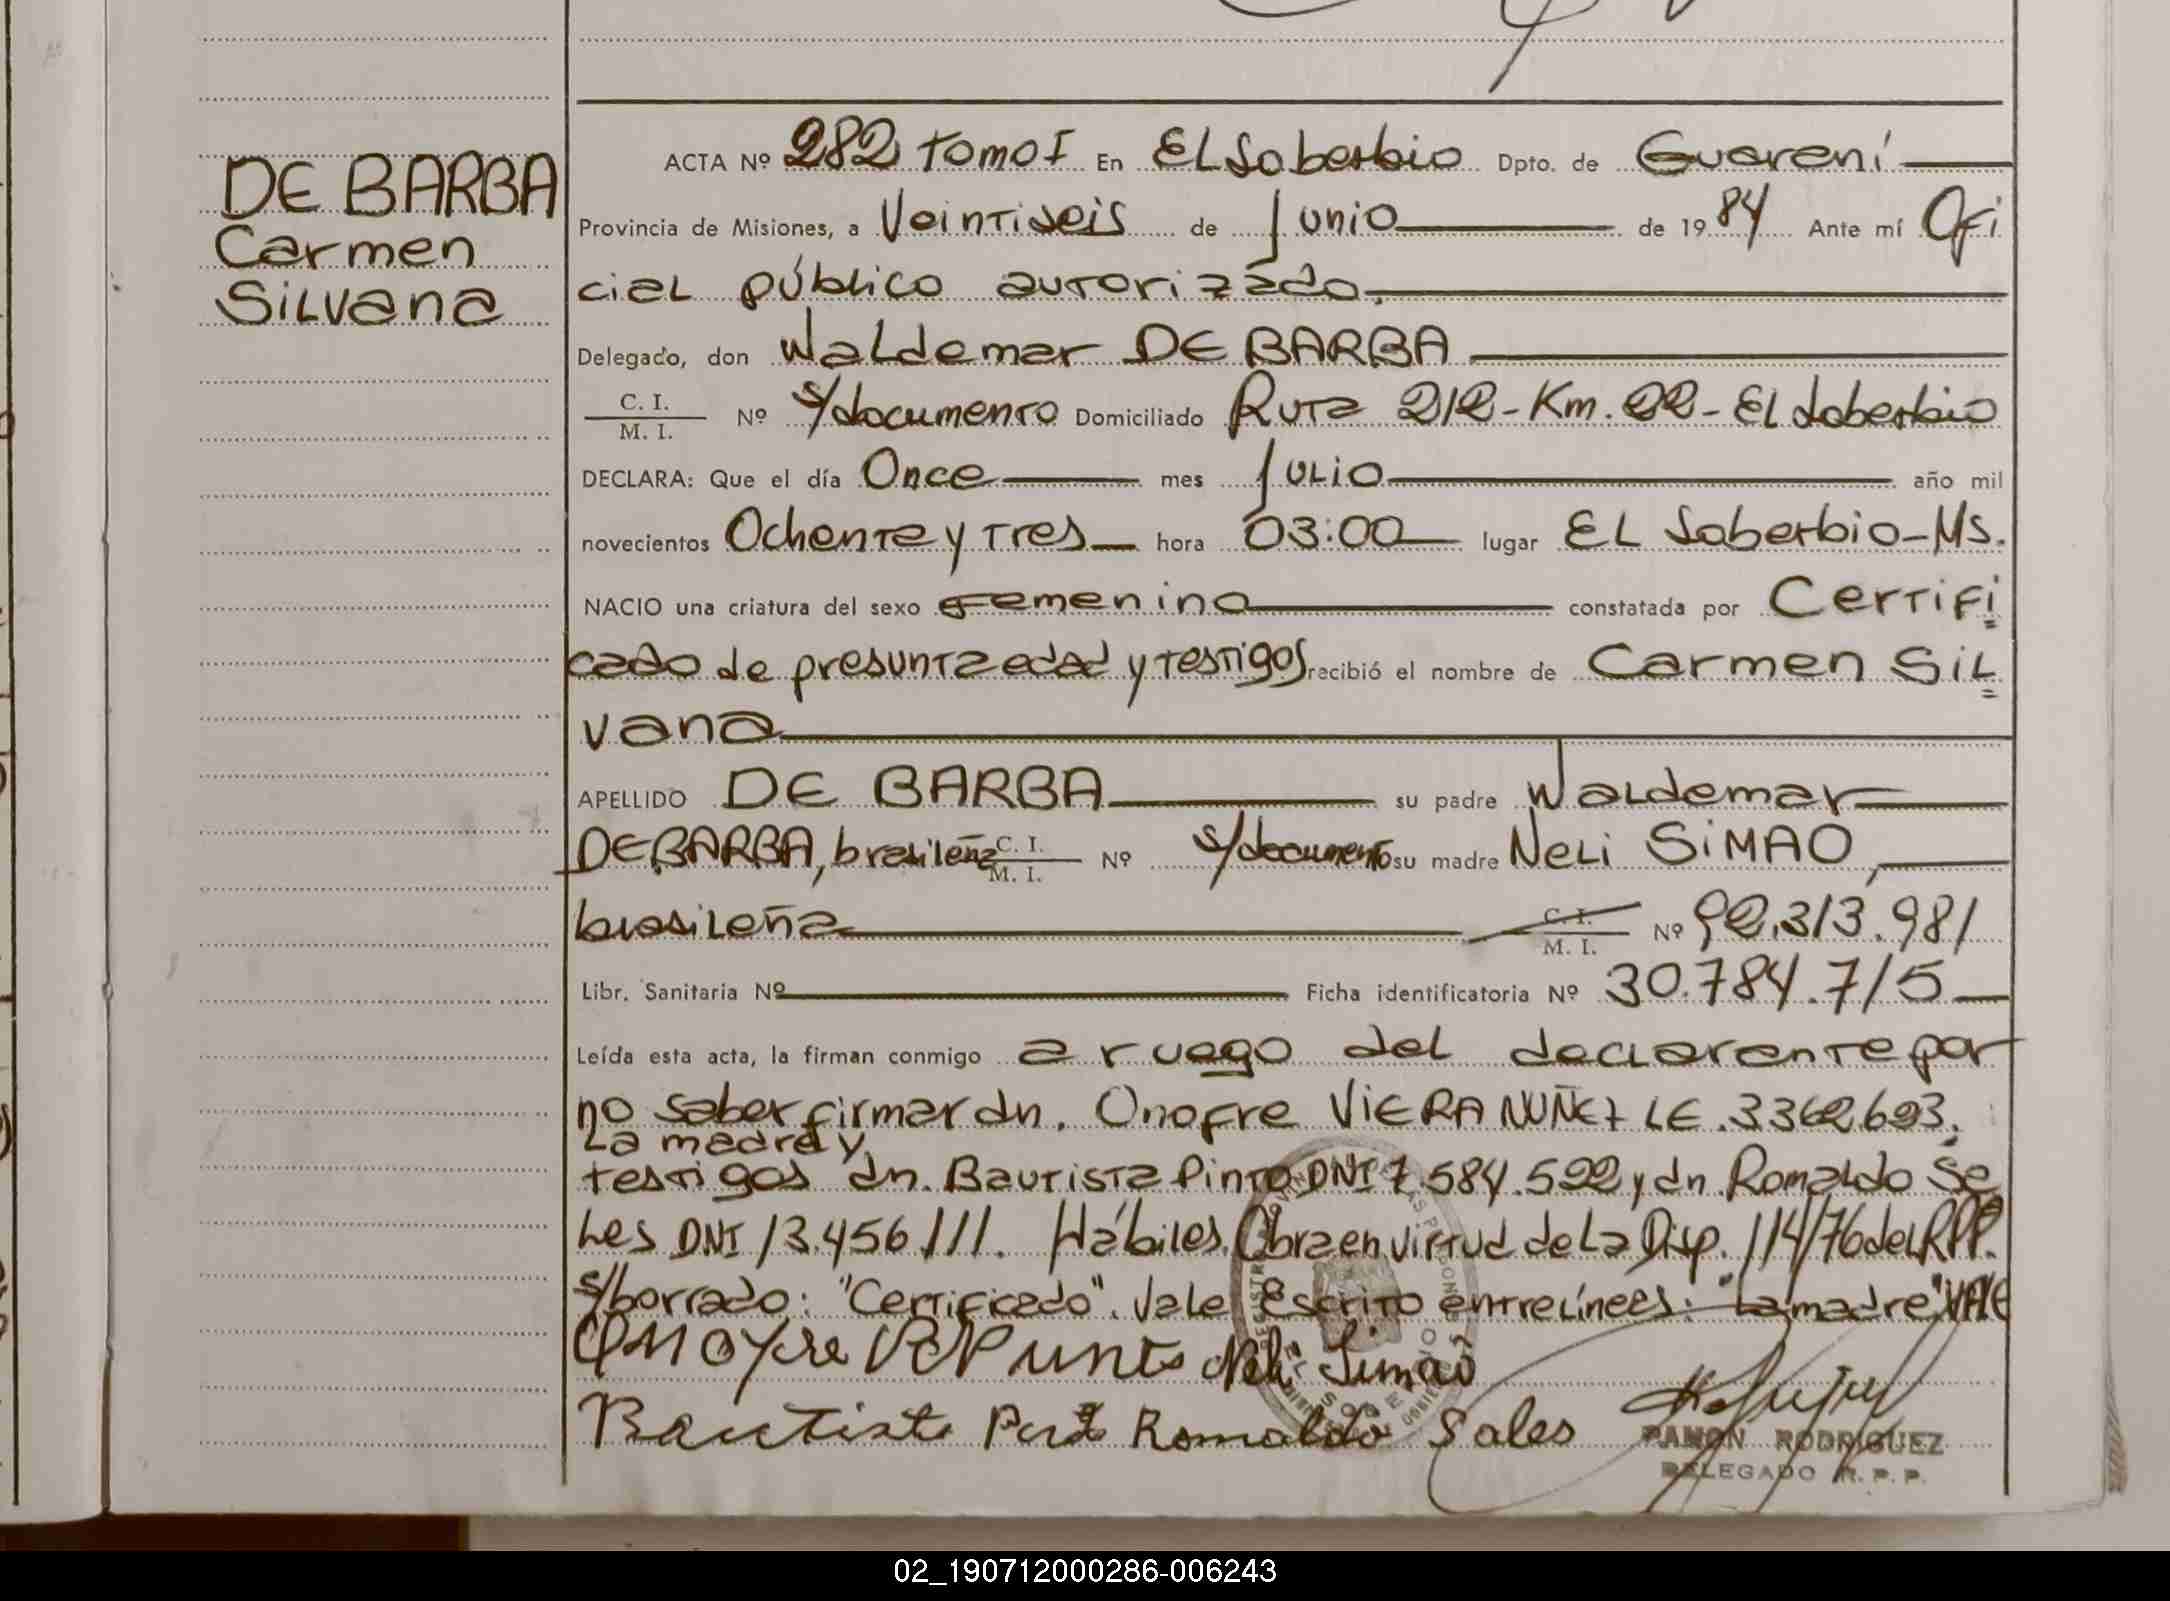 DE BARBA
Carmen
Silvana
ACTA Nº 282 tomo I En El Soberbio Dpto. de Guaraní
Provincia de Misiones, a Veintiseis de Junio de 1984 Ante mí Ofi
cial público autorizado.
Delegado, don Waldemar DE BARBA
C. I.
M. I. Nº s/documento Domiciliado Ruta 212-Km.22-El Soberbio
DECLARA: Que el día Once mes Julio año mil
novecientos Ochenta y Tres hora 03:00 lugar El Soberbio-Ms.
NACIO una criatura del sexo femenino constatada por Certifi
cado de presunta edad y testigos recibió el nombre de Carmen Sil
vana
APELLIDO DE BARBA su padre Waldemar
DE BARBA, brasileña C. I. M. I. Nº s/documento su madre Neli SIMAO,
brasileña C. I. M. I. Nº 92.313.981
Libr. Sanitaria Nº Ficha identificatoria Nº 30.784.715
Leída esta acta, la firman conmigo a ruego del declarante por
no saber firmar dn. Onofre VIERA NUÑEZ LE.3362693.
La madre y
testigos dn. Bautista Pinto DNI 7.584.592 y dn Romaldo Sa
les DNI 13.456.111. Hábiles. Obra en virtud de la Disp. 114/76 del RPP.
s/borrado: "Certificado". Vale Escrito entrelínees: "La madre" VALE
Neli Simao
Bautista Romaldo Sales
RAMON RODRIGUEZ
DELEGADO R. P. P.
02_190712000286-006243